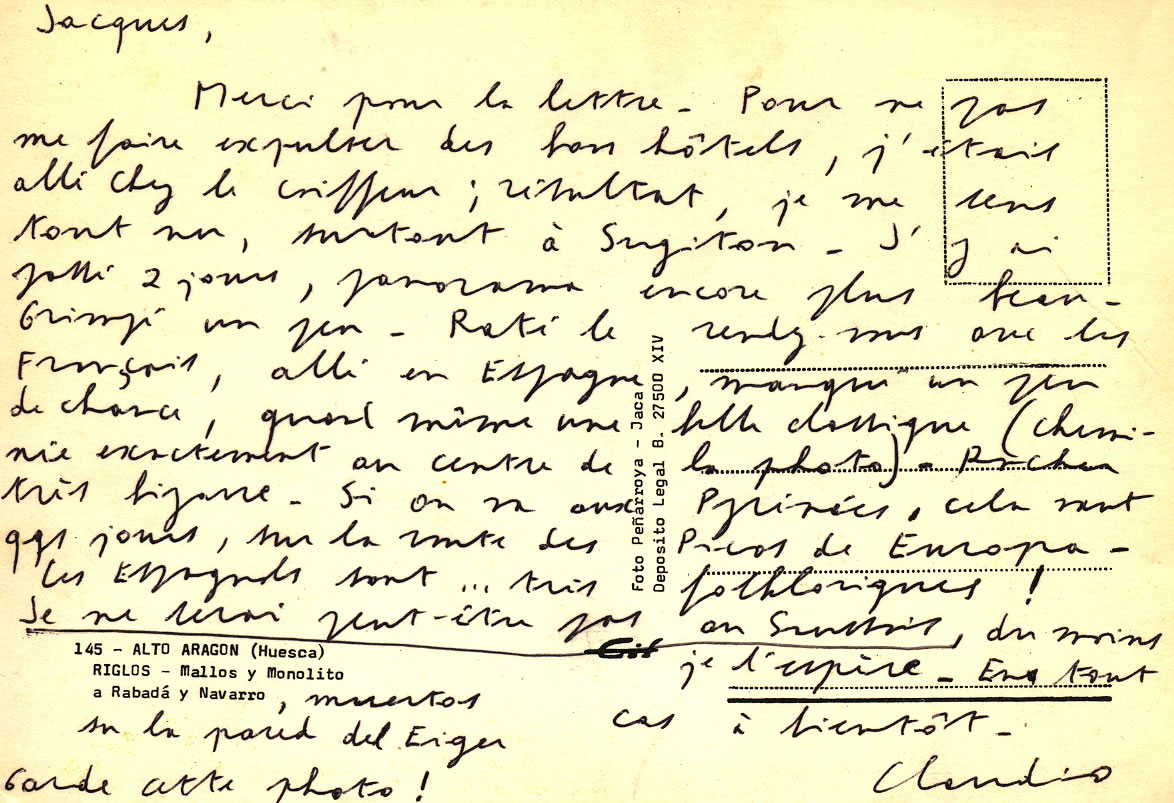 Jacques,
Merci pour la lettre - Pour ne pas
me faire expulser des bons hôtels, j'étais
allé chez le coiffeur ; résultat, je me sens
tout nu, surtout à Sugiton - J'y ai
passé 2 jours, panorama encore plus beau -
Grimpé un peu - Raté le rendz-vous avec les
Français, allé en Espagne, manqué un peu
de chance, quand même une belle classique (chemi-
née exactement au centre de la photo). Rocher
très bizarre - Si on va aux Pyrénées, cela vaut
qqs jours, sur la route des Picos de Europa -
Les Espagnols sont ... très folkloriques !
Je ne serai peut-être pas au , du moins
je l'espère - En tout
cas à bientôt -
Claudio
Foto Peñarroya - Jaca
Deposito Legal B. 27500 XIV
145 - ALTO ARAGON (Huesca)
RIGLOS - Mallos y Monolito
a Rabadá y Navarro, muertos
en la pared del Eiger
Garde cette photo !